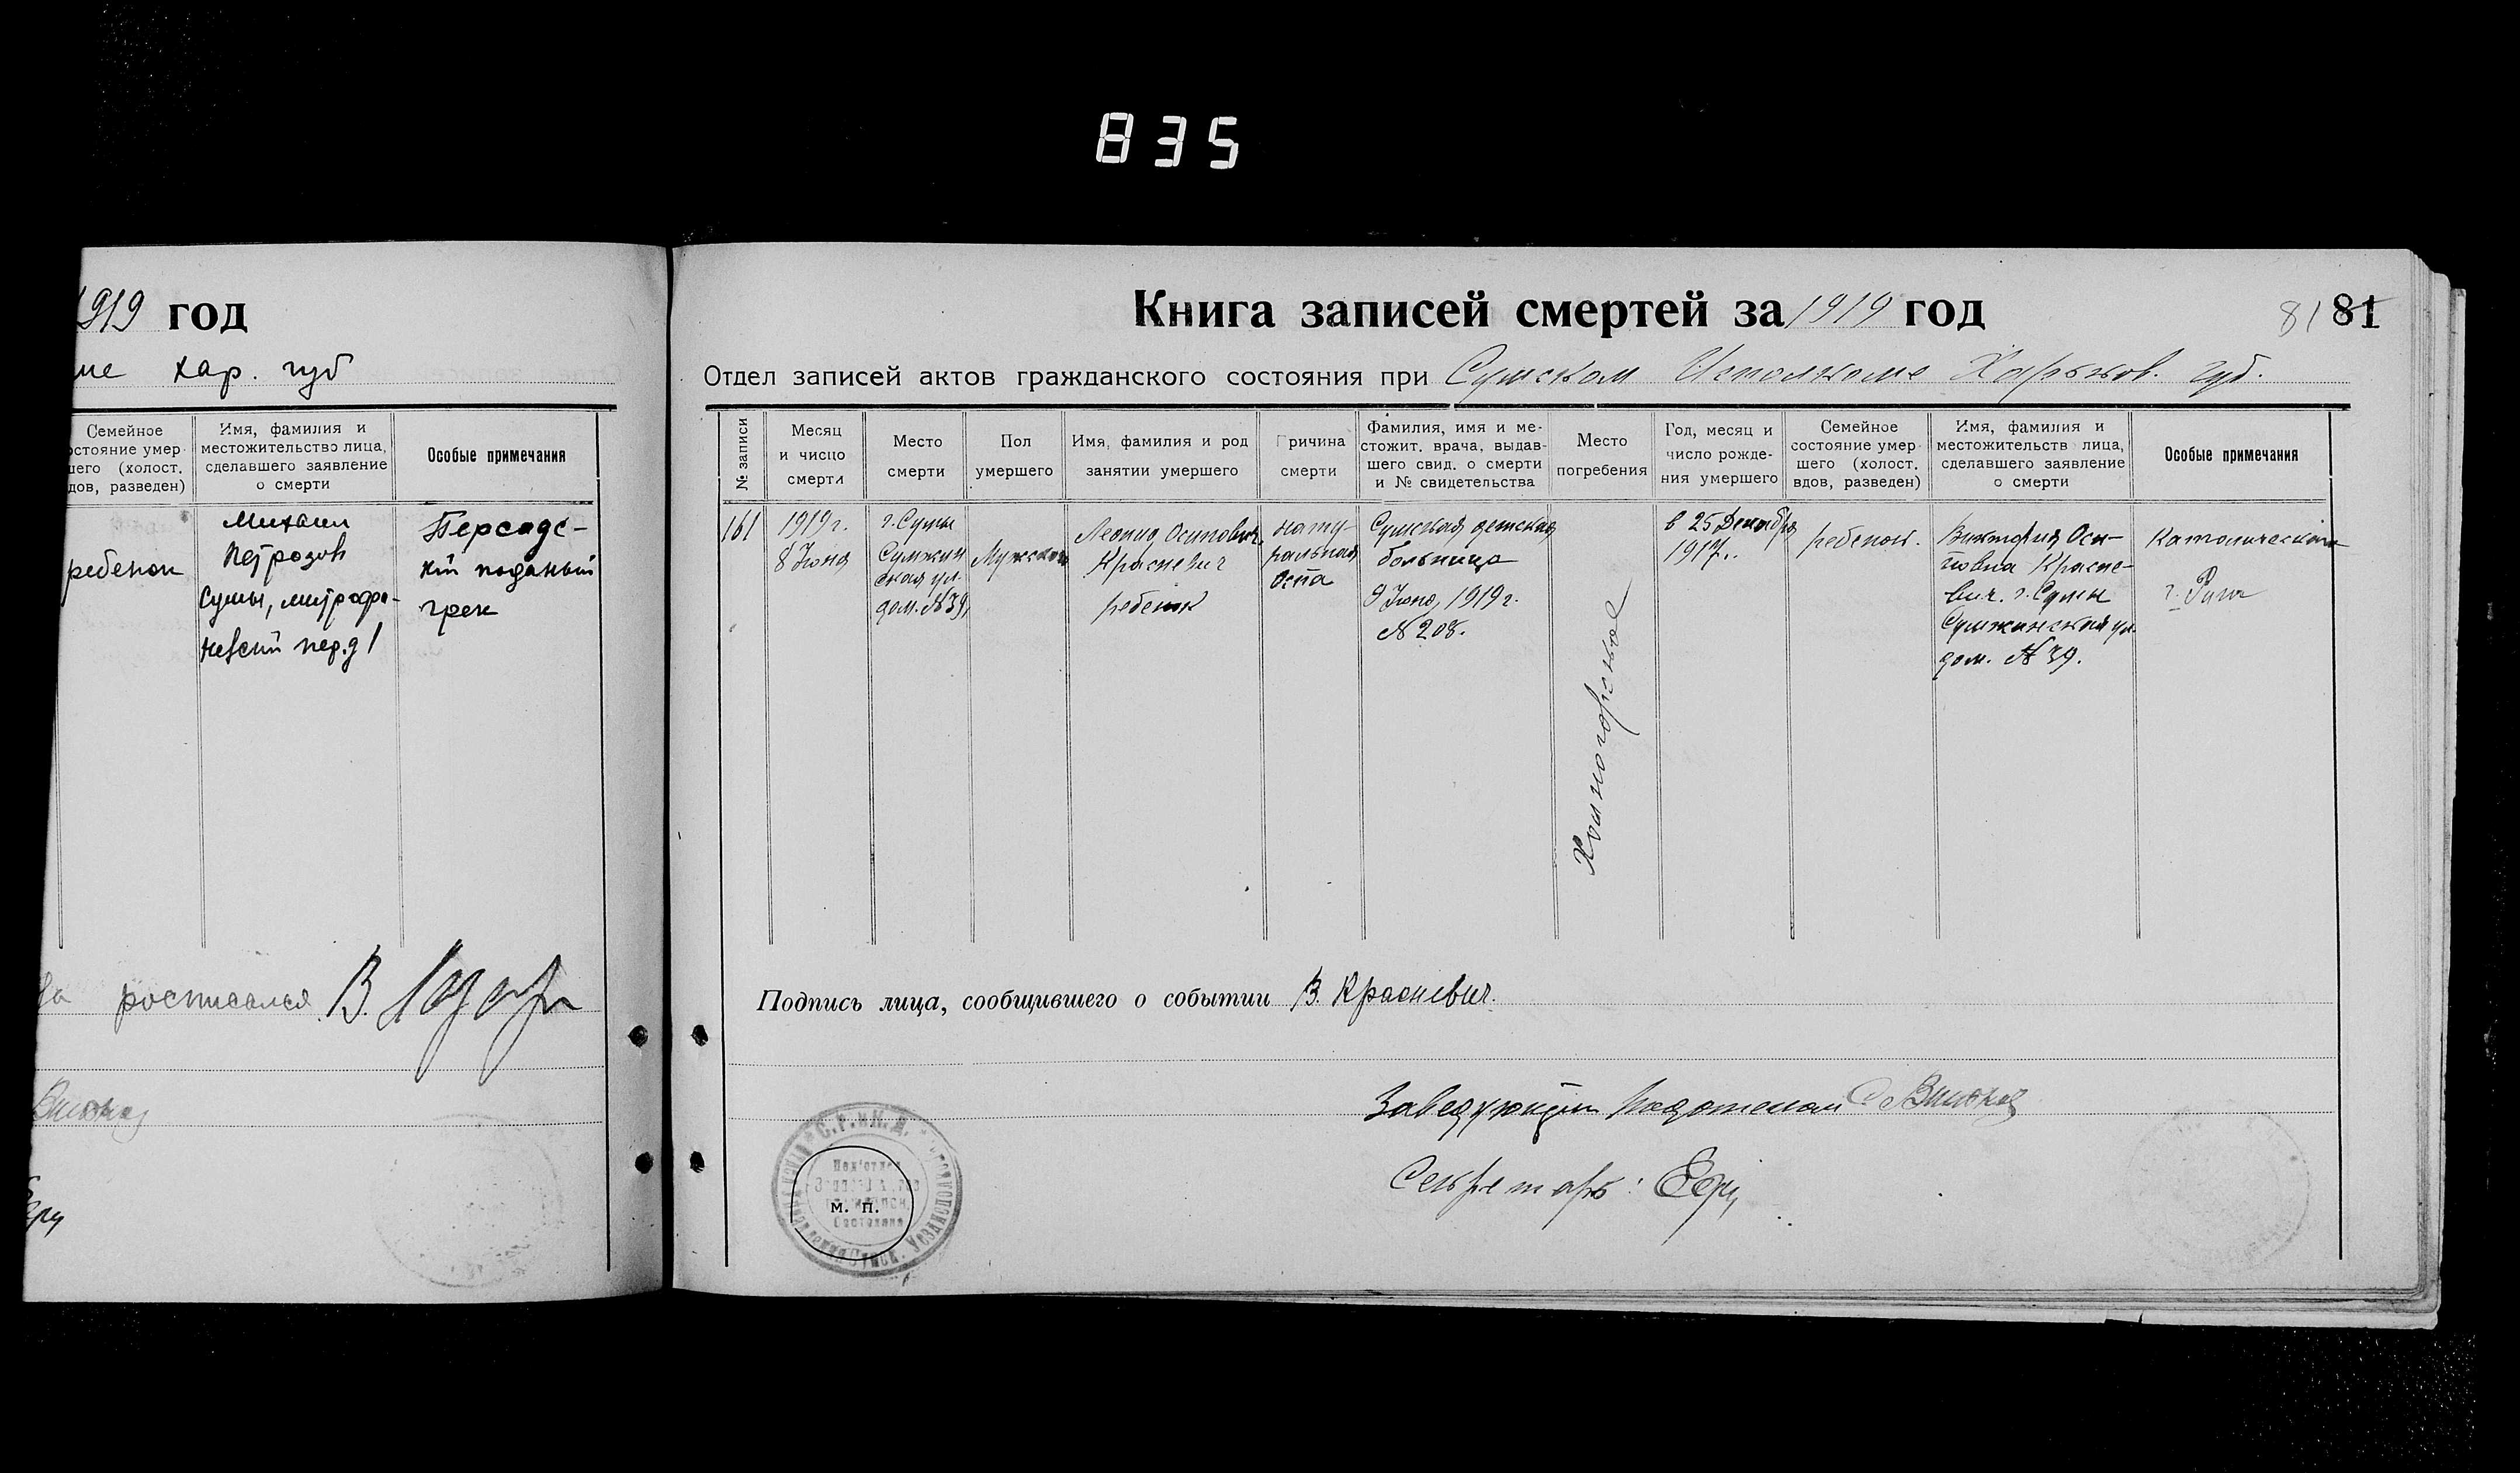 835
1919 год
ме хар. губ
Семейное
остояние умер
шего (холост.
дов, разведен)
Имя, фамилия и
местожительство лица,
сделавшего заявление
о смерти
Особые примечания
ребенок
Михаил
Петрозов
Сумы, митрофа-
невский пер. д 1
Персидс-
кий поданый
грек
росписался В.
Книга записей смертей за 1919 год
81 81
Отдел записей актов гражданского состояния при Сумском Исполкоме Харьков. губ.
№ записи
Месяц
и число
смерти
Место
смерти
Пол
умершего
Имя, фамилия и род
занятии умершего
Причина
смерти
Фамилия, имя и ме-
стожит. врача, выдав-
шего свид. о смерти
и № свидетельства
Место
погребения
Год, месяц и
число рожде-
ния умершего
Семейное
состояние умер
шего (холост.
вдов, разведен)
Имя, фамилия и
местожительств лица,
сделавшего заявление
о смерти
Особые примечания
161
1919 г.
8 Июня
г. Сумы
Сумжин
ская ул.
дом. № 39,
Мужской
Леонид Осипович
Красневич
ребенок
нату-
ральная
оспа
Сумская детская
больница
9 Июня, 1919 г.
№ 208.
Холмогорское
в 25 Декабря
1917 г.
ребенок.
Виктория Оси-
повна Красне-
вич. г. Сумы
Сумжинская ул.
дом. № 39.
Католический
г. Рига
Подпись лица, сообщившего о событии В. Красневич.
Заведующий Подотделом
Секретарь:
С.Р. и К.Д.
Под'отдел
Состояния
М. П.